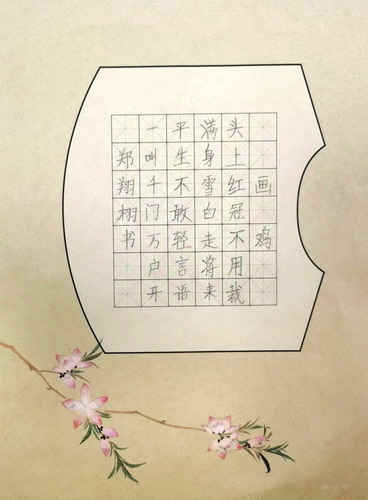 画鸡
头上红冠不用裁
满身雪白走将来
平生不敢轻言语
一叫千门万户开
郑翔栩书